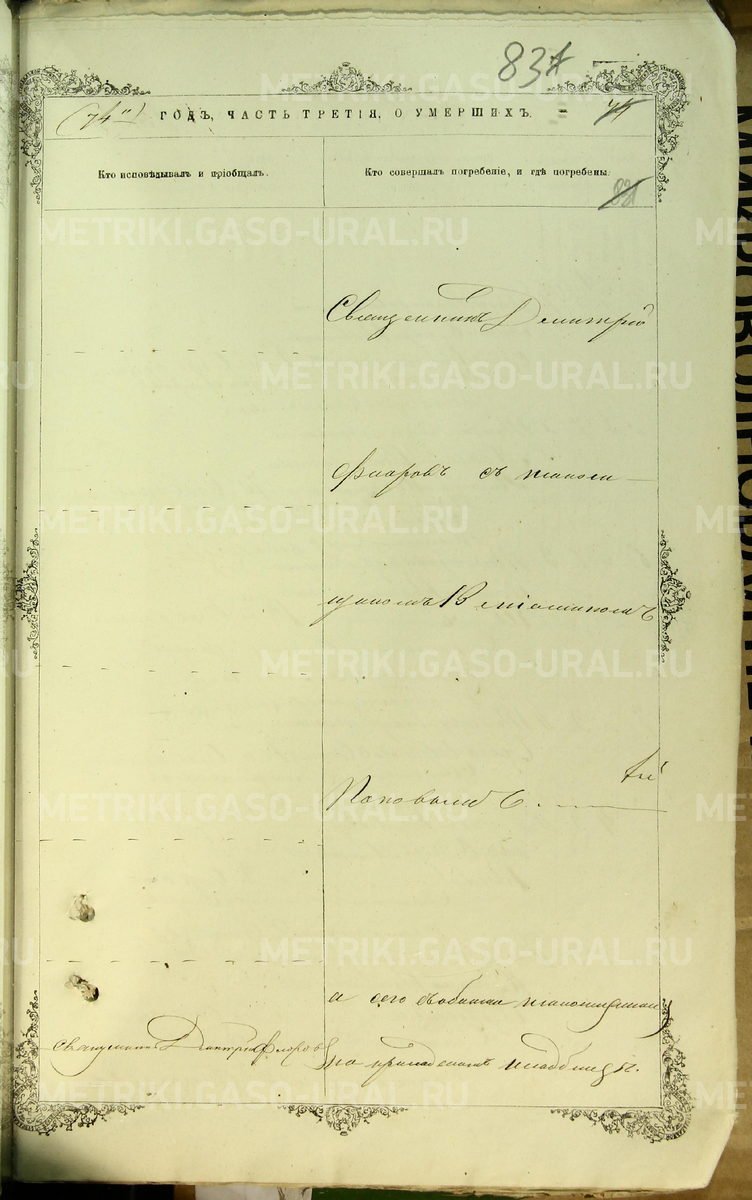 83
(74 г.) ГОДЪ, ЧАСТЬ ТРЕТІЯ, О УМЕРШИХЪ.
Кто исповѣдывалъ и пріобщалъ.
Кто совершалъ погребеніе, и гдѣ погребены.
83
Священникъ Димитрій
Флоровъ съ псаломщикомъ
Веніаминомъ
Поповымъ.
а сего съ обоими псаломщиками
Священникъ Дмитрій Флоровъ
на приходскомъ кладбищѣ.
METRIKI.GASO-URAL.RU